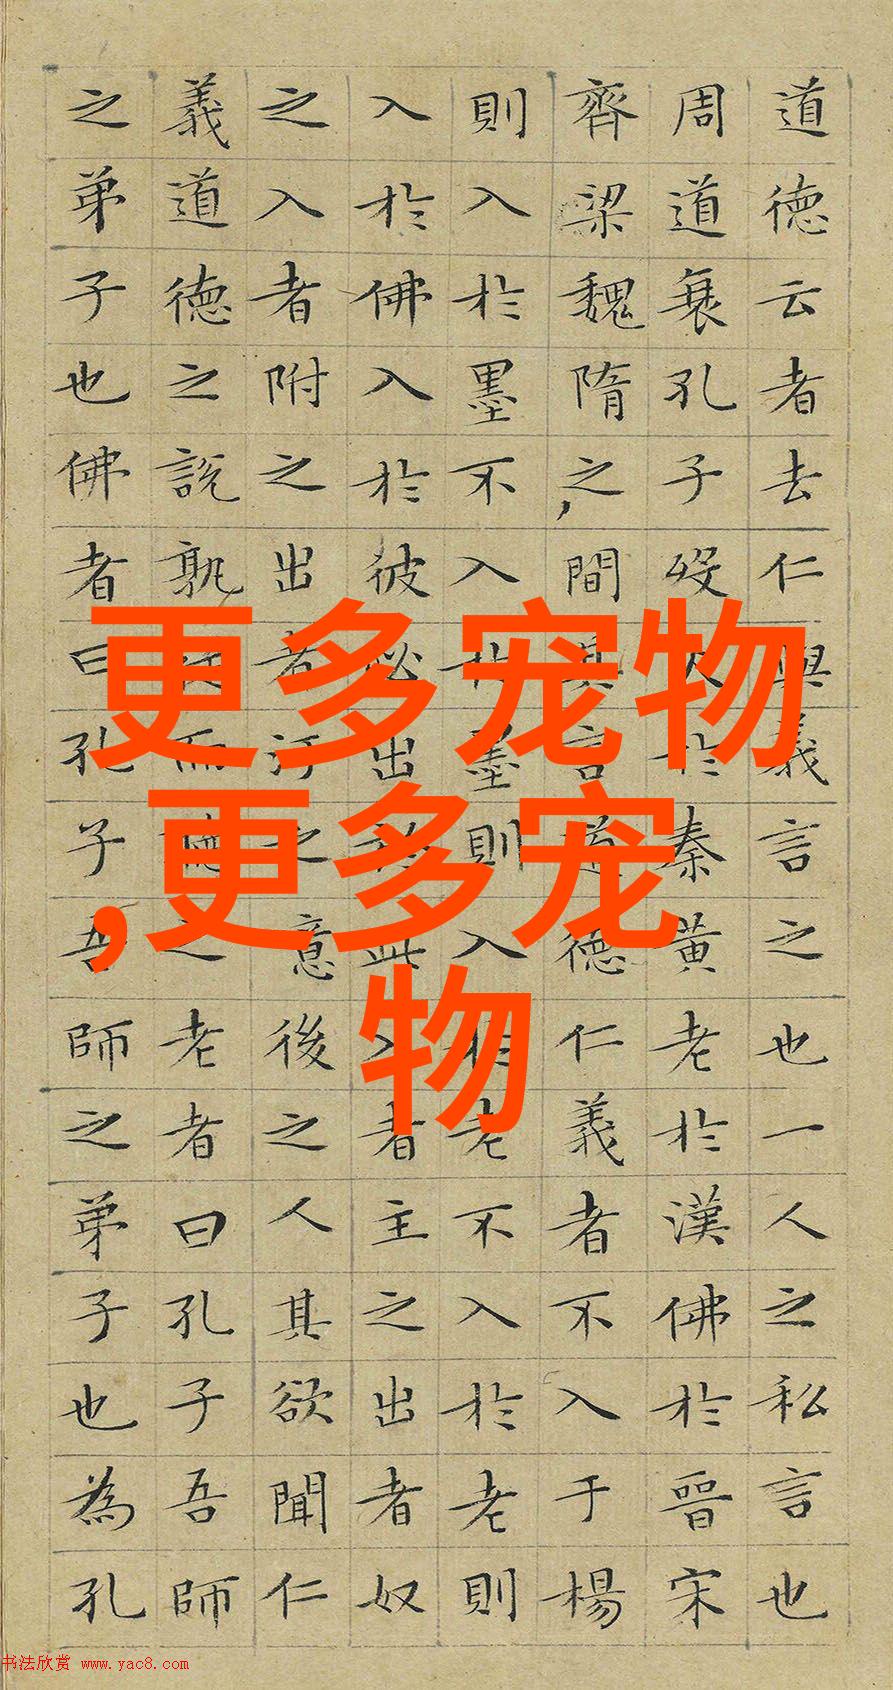 更多宠物
,更多宠
物
道德云者去仁與義言之也一人之私言也
周道衰孔子歿火於秦黃老於漢佛於晉宋
齊梁魏隋之間其言道德仁義者不入于楊
則入於墨不入於墨則入於老不入於老則
入於佛入於彼必出於此入者主之出者奴
之入者附之出者汙之意後之人其欲聞仁
義道德之說孰從而聽之老者曰孔子吾師
之弟子也佛者曰孔子吾師之弟子也為孔
书法欣赏 www.yac8.com